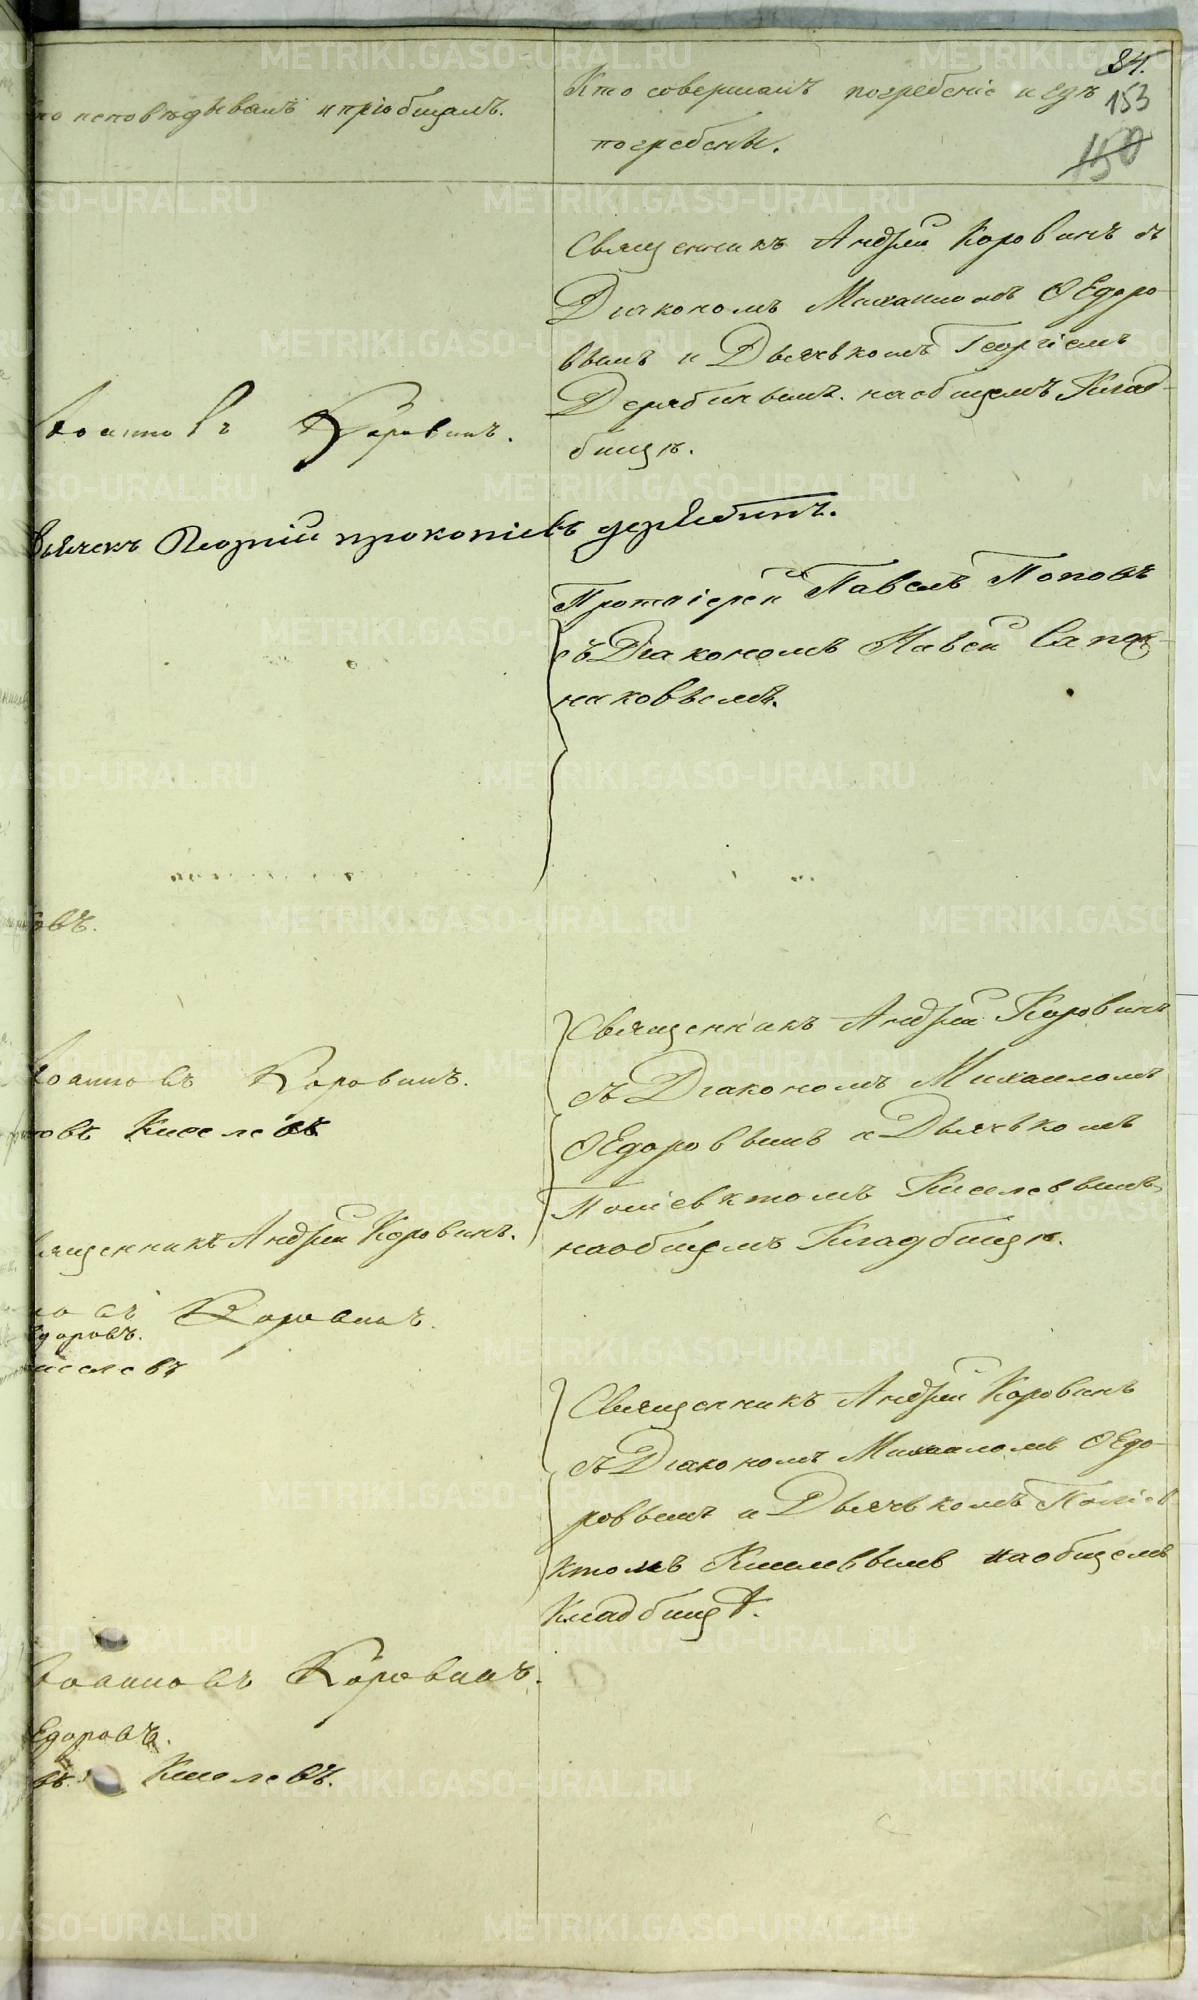 84.
153
150
то исповѣдывалъ и пріобщалъ.
Кто совершалъ погребеніе и гдѣ
погребены.
Священникъ Андрей Коровинъ съ
Діакономъ Михаиломъ Ѳедоро-
вымъ и Дьячькомъ Георгіемъ
Дерябинымъ. на общемъ Клад-
бищѣ.
Іоанновъ Коровинъ.
Дьячекъ Георгій прокопіевъ дерябинъ.
Протоіерей Павелъ Поповъ
съ Діакономъ Павей Сапож-
никовъемъ.
овъ.
Священникъ Андрей Коровинъ
съ Діакономъ Михаиломъ
Ѳедоровымъ и Дьячькомъ
Поліевктомъ Киселевымъ,
на общемъ Кладбищѣ.
Іоанновъ Коровинъ.
товъ Киселевъ
вященникъ Андрей Коровинъ.
но въ Коровинъ.
едоровъ.
иселевъ
Священникъ Андрей Коровинъ
съ Діакономъ Михаиломъ Ѳедо-
ровымъ и Дьячькомъ Поліев-
ктомъ Киселевымъ на общемъ
Кладбищѣ.
Іоанновъ Коровинъ.
Ѳедоровъ.
въ. Киселевъ.
METRIKI.GASO-URAL.RU